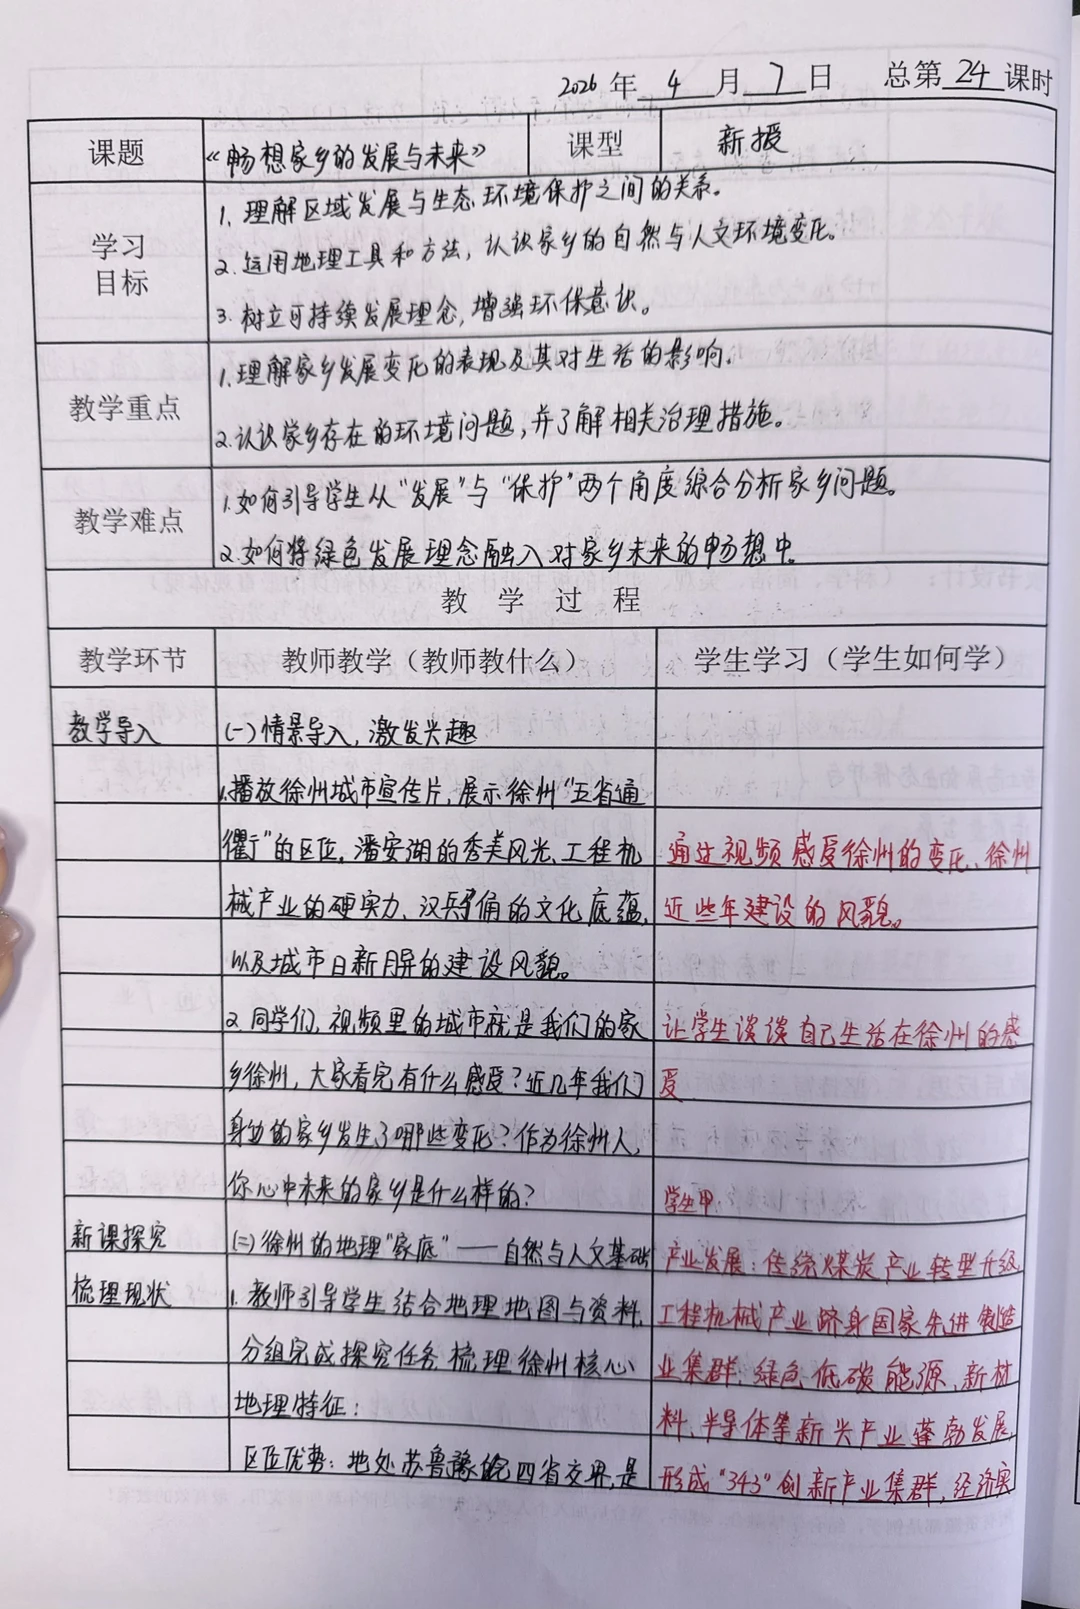 2026年 4 月 7 日 总第 24 课时
课题 《畅想家乡的发展与未来》 课型 新授
学习目标
1. 理解区域发展与生态环境保护之间的关系。
2. 运用地理工具和方法，认识家乡的自然与人文环境变化。
3. 树立可持续发展理念，增强环保意识。
教学重点
1. 理解家乡发展变化的表现及其对生活的影响。
2. 认识家乡存在的环境问题，并了解相关治理措施。
教学难点
1. 如何引导学生从“发展”与“保护”两个角度综合分析家乡问题。
2. 如何将绿色发展理念融入对家乡未来的畅想中。
教 学 过 程
教学环节 教师教学（教师教什么） 学生学习（学生如何学）
教学导入 (一)情景导入，激发兴趣
1.播放徐州城市宣传片，展示徐州“五省通
衢”的区位，潘安湖的秀美风光、工程机
械产业的硬实力、汉兵马俑的文化底蕴，
以及城市日新月异的建设风貌。
通过视频感受徐州的变化、徐州
近些年建设的风貌。
2.同学们，视频里的城市就是我们的家
乡徐州，大家看完有什么感受？近几年我们
身边的家乡发生了哪些变化？作为徐州人，
你心中未来的家乡是什么样的？
让学生谈谈自己生活在徐州的感
受
学生甲
新课探究
梳理现状
(二)徐州的地理“家底”——自然与人文基础
1. 教师引导学生结合地理地图与资料，
分组完成探究任务梳理徐州核心
地理特征：
区位优势：地处苏鲁豫皖四省交界，是
产业发展：传统煤炭产业转型升级，
工程机械产业跻身国家先进制造
业集群，绿色低碳能源、新材
料、半导体等新兴产业蓬勃发展，
形成“343”创新产业集群，经济实